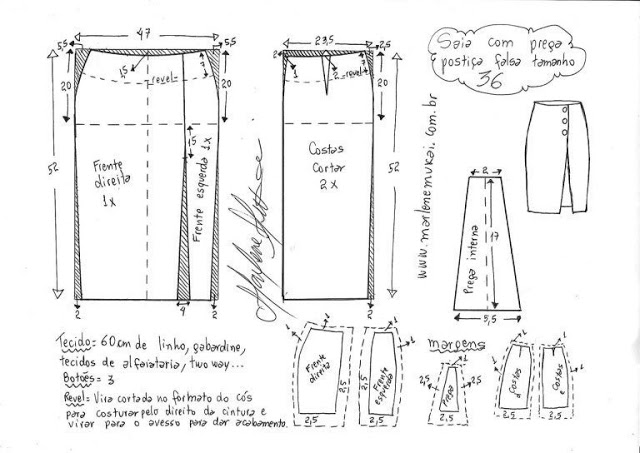 Saia com prega
postiça falsa tamanho
36
47
5,5
5,5
20
52
1,5
revel=
7
20
15
Frente
direita
1x
Frente esquerda 1x
2
4
2
23,5
2,5
2
1
2
revel=
7
20
52
Costas
Cortar
2x
2
www.marlenemukai.com.br
2
17
Prega interna
5,5
Tecido= 60cm de linho, gabardine,
tecidos de alfaiataria, two way...
Botões= 3
Revel= Vira cortada no formato do cós
para costurar pelo direito da cintura e
virar para o avesso para dar acabamento.
margens
1
Frente
direita
2,5
2,5
1
1
Frente
esquerda
2,5
1
2,5
Prega
2,5
2,5
1
1
Costas
d
2,5
1
1
Costas
e
2,5